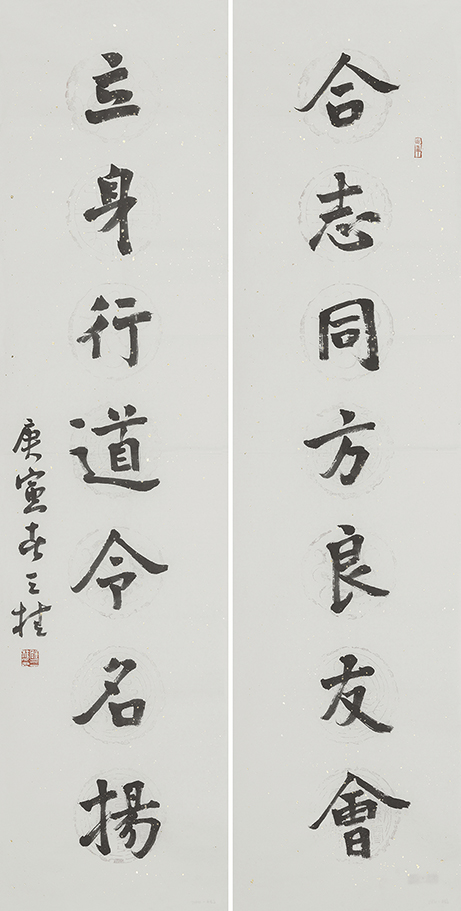 合志同方良友會
立身行道令名揚
庚寅春之桂